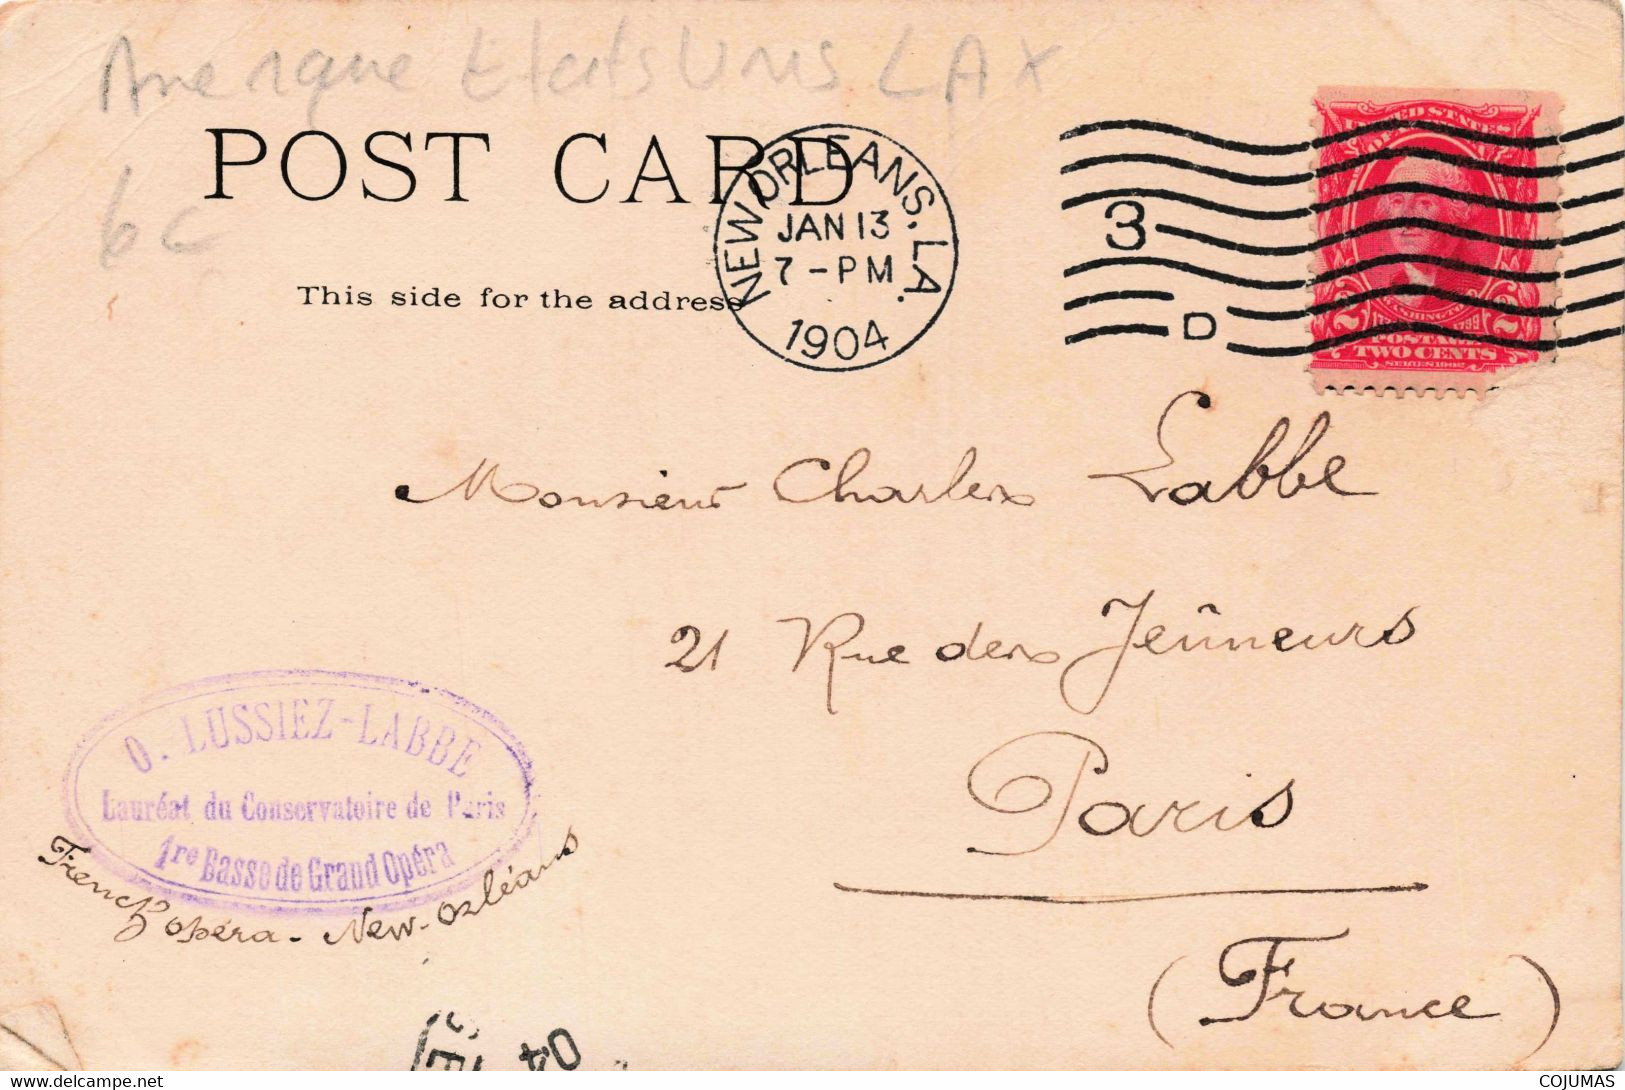 Amerique Etats Unis LAX
6 C
POST CARD
This side for the address
NEW ORLEANS, LA.
JAN 13
7 - PM
1904
3
D
UNITED STATES
OF AMERICA
WASHINGTON
2 2
1799
POSTAGE
TWO CENTS
SERIES 1902
Monsieur Charles Labbe
21 Rue des Jeûneurs
Paris
(France)
O. LUSSIEZ-LABBE
Lauréat du Conservatoire de Paris
1re Basse de Grand Opéra
French opéra - New-Orléans
04
www.delcampe.net
COJUMAS